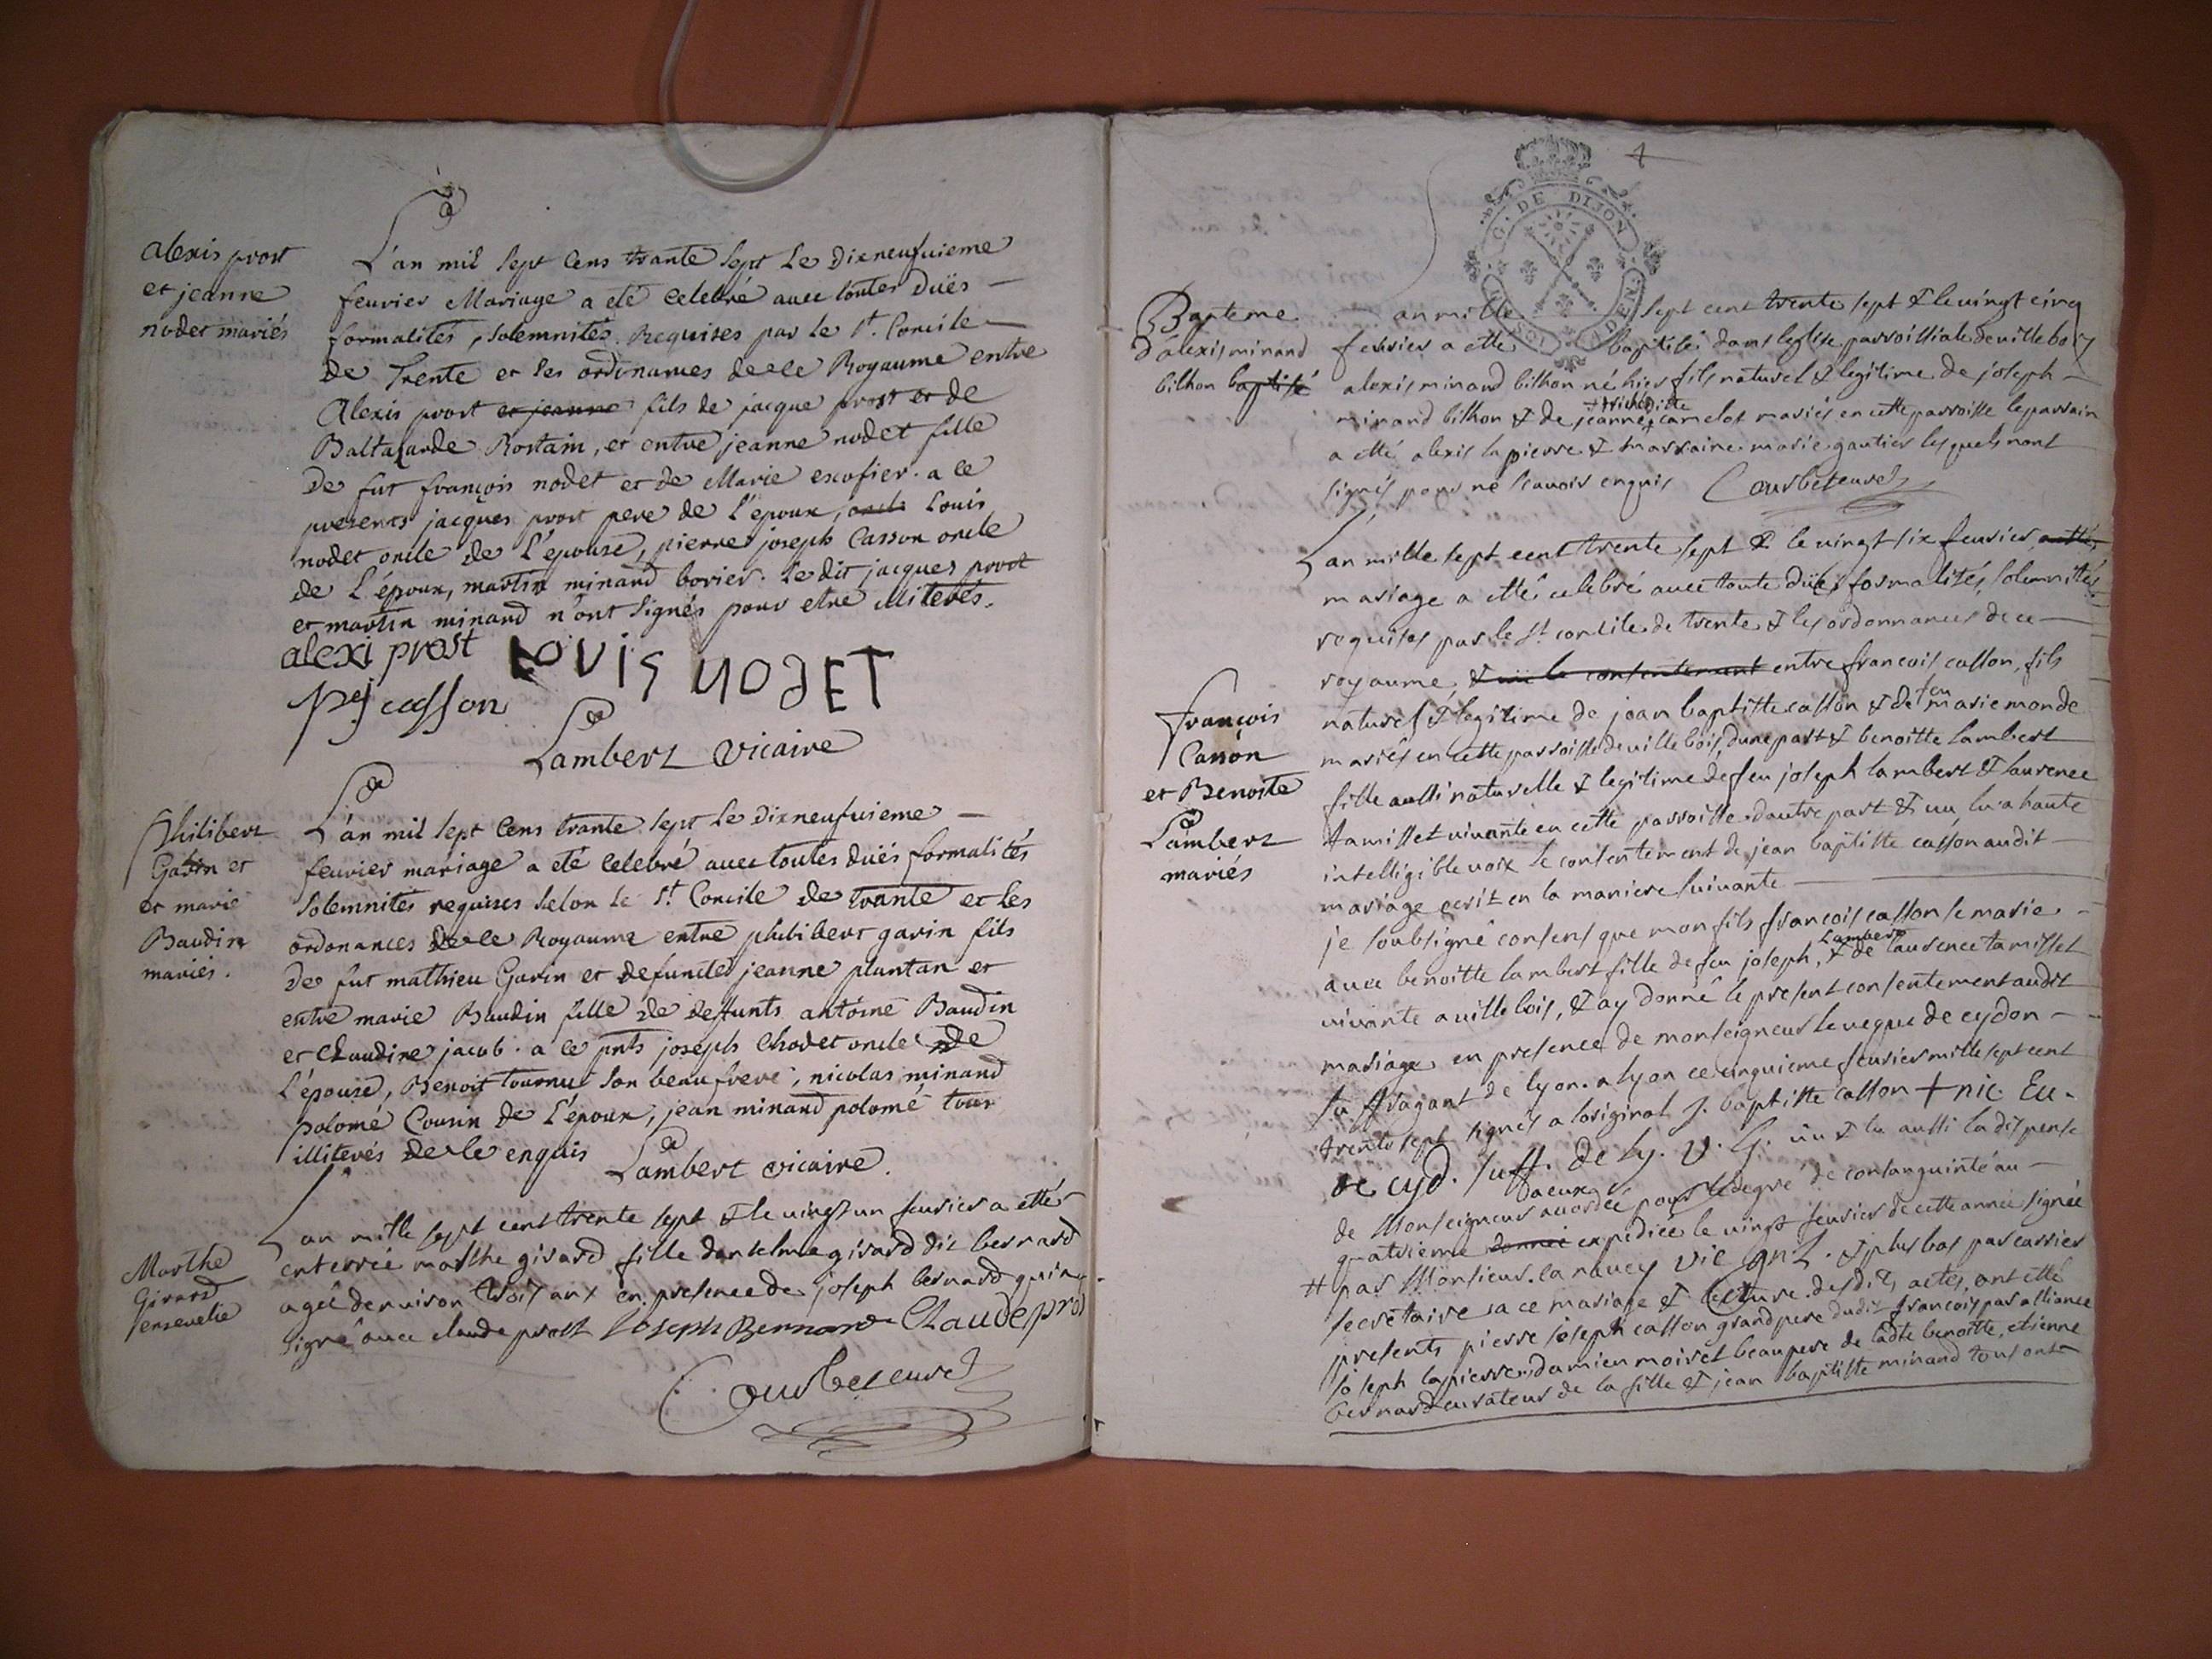 alexis prost
et jeanne
nodet mariés
L'an mil sept cens trante sept le dixneufuieme
feurier Mariage a eté celebré auec toutes duës
formalités, solemnités requises par le st. Concile
de Trente et les ordonances de ce Royaume entre
Alexis prost et jeanne fils de jacque prost et de
Baltazarde Rostain, et entre jeanne nodet fille
de fut françois nodet et de Marie escofier. a ce
presents jacques prost pere de l'époux, oncle Louis
nodet oncle de l'épouse, pierre joseph Casson oncle
de l'époux, martin minand borier. le dit jacques prost
et martin minand n'ont signés pour etre illiterés.
alexi prost LOUIS NODET
pej casson
Lambert vicaire
Philibert
Garin et
et marie
Baudin
mariés.
L'an mil sept cens trante sept le dixneufuieme
feurier mariage a eté celebré auec toutes duës formalités
solemnités requises selon le st. Concile de trante et les
ordonances de ce Royaume entre philibert garin fils
de fut mathieu Garin et defuncte jeanne plantan et
entre marie Baudin fille de deffunts antoine Baudin
et claudine jacob. a ce pnts joseph Chodet oncle de
l'épouse, Benoit tournu son beaufrere, nicolas minand
polomé Cousin de l'époux, jean minand polomé tous
illiterés de ce enquis Lambert vicaire.
Marthe
Girard
enseuelie
Lan mille sept cent trente sept & le uingt un feurier a etté
enterrée marthe girard fille danthelme girard dit bernard
agée denuiron trois ans en presence de joseph bernard qui a
signé auec claude prost Joseph Bernard Claude pros
Courbereure
Bapteme
d'alexis minand
bilhon baptisé
an mille sept cent trente sept & le uingt cinq
feurier a etté baptisé dans leglise parroissiale de uillebois
alexis minand bilhon né hier fils naturel & legitime de joseph
minand bilhon & de jeanne camelot mariés en cette parroisse le parrain
a etté alexis lapierre & marraine marie gautier lesquels nont
signés pour ne scauoir enquis Courbereure
G. DE DIJON
françois
Casson
et Benoite
Lambert
mariés
Lan mille sept cent trente sept & le uingt six feurier a etté
mariage a etté celebré auec toute duës formalités, solemnités
requises par le st concile de trente & les ordonnances de ce
royaume, & uû le consentement entre francois casson, fils
naturel & legitime de jean baptiste casson & de feu marie monde
mariés en cette parroisse de uille bois, dune part & benoitte lambert
fille aussi naturelle & legitime de feu joseph lambert & laurence
tamisset uiuante en cette parroisse dautre part & uu, lu a haute
intelligible uoix le consentement de jean baptiste casson audit
mariage ecrit en la maniere suiuante
je soubsigné consens que mon fils francois casson se marie
auec benoitte lambert fille de feu joseph lambert, & de laurence tamisset
uiuante a uille bois, & ay donné le present consentement audit
mariage en presence de monseigneur leueque de cydon
suffragant de lyon. a lyon ce cinquieme feurier mille sept cent
trente sept signés a loriginal j. baptiste casson + nic. Eu.
de cyd. suff. de ly. v. g. uû & lu aussi la dispense
de Monseigneur a eux accordée pour le degré de consanguinté au
quatrieme donnée expediée le uingt feurier de cette année signée
# par Monsieur. la nauey vic gnl. & plus bas par carrier
secretaire a ce mariage & lecture desdits actes, ont etté
presents pierre joseph casson grand pere dudit francois par alliance
joseph lapierre, damien moiret beaupere de ladte benoitte, etienne
bernard curateur de la fille & jean baptiste minand tous ont